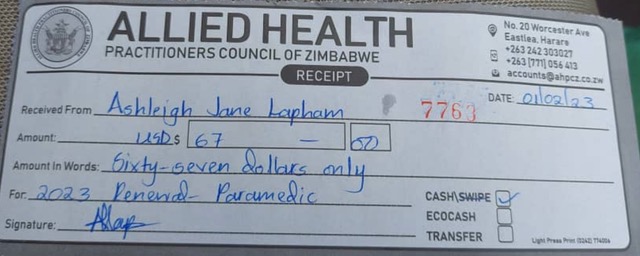 ALLIED HEALTH
PRACTITIONERS COUNCIL OF ZIMBABWE
No. 20 Worcester Ave
Eastlea, Harare
+263 242 303027
+263 (771) 056 413
accounts@ahpcz.co.zw
RECEIPT
Received From Ashleigh Jane Lapham 7763 DATE: 01/02/23
Amount: USD $ 67 — 00
Amount In Words: Sixty-seven dollars only
For: 2023 Renewal - Paramedic
CASH\SWIPE ✓
ECOCASH
TRANSFER
Signature:
Light Press Print (0242) 774004